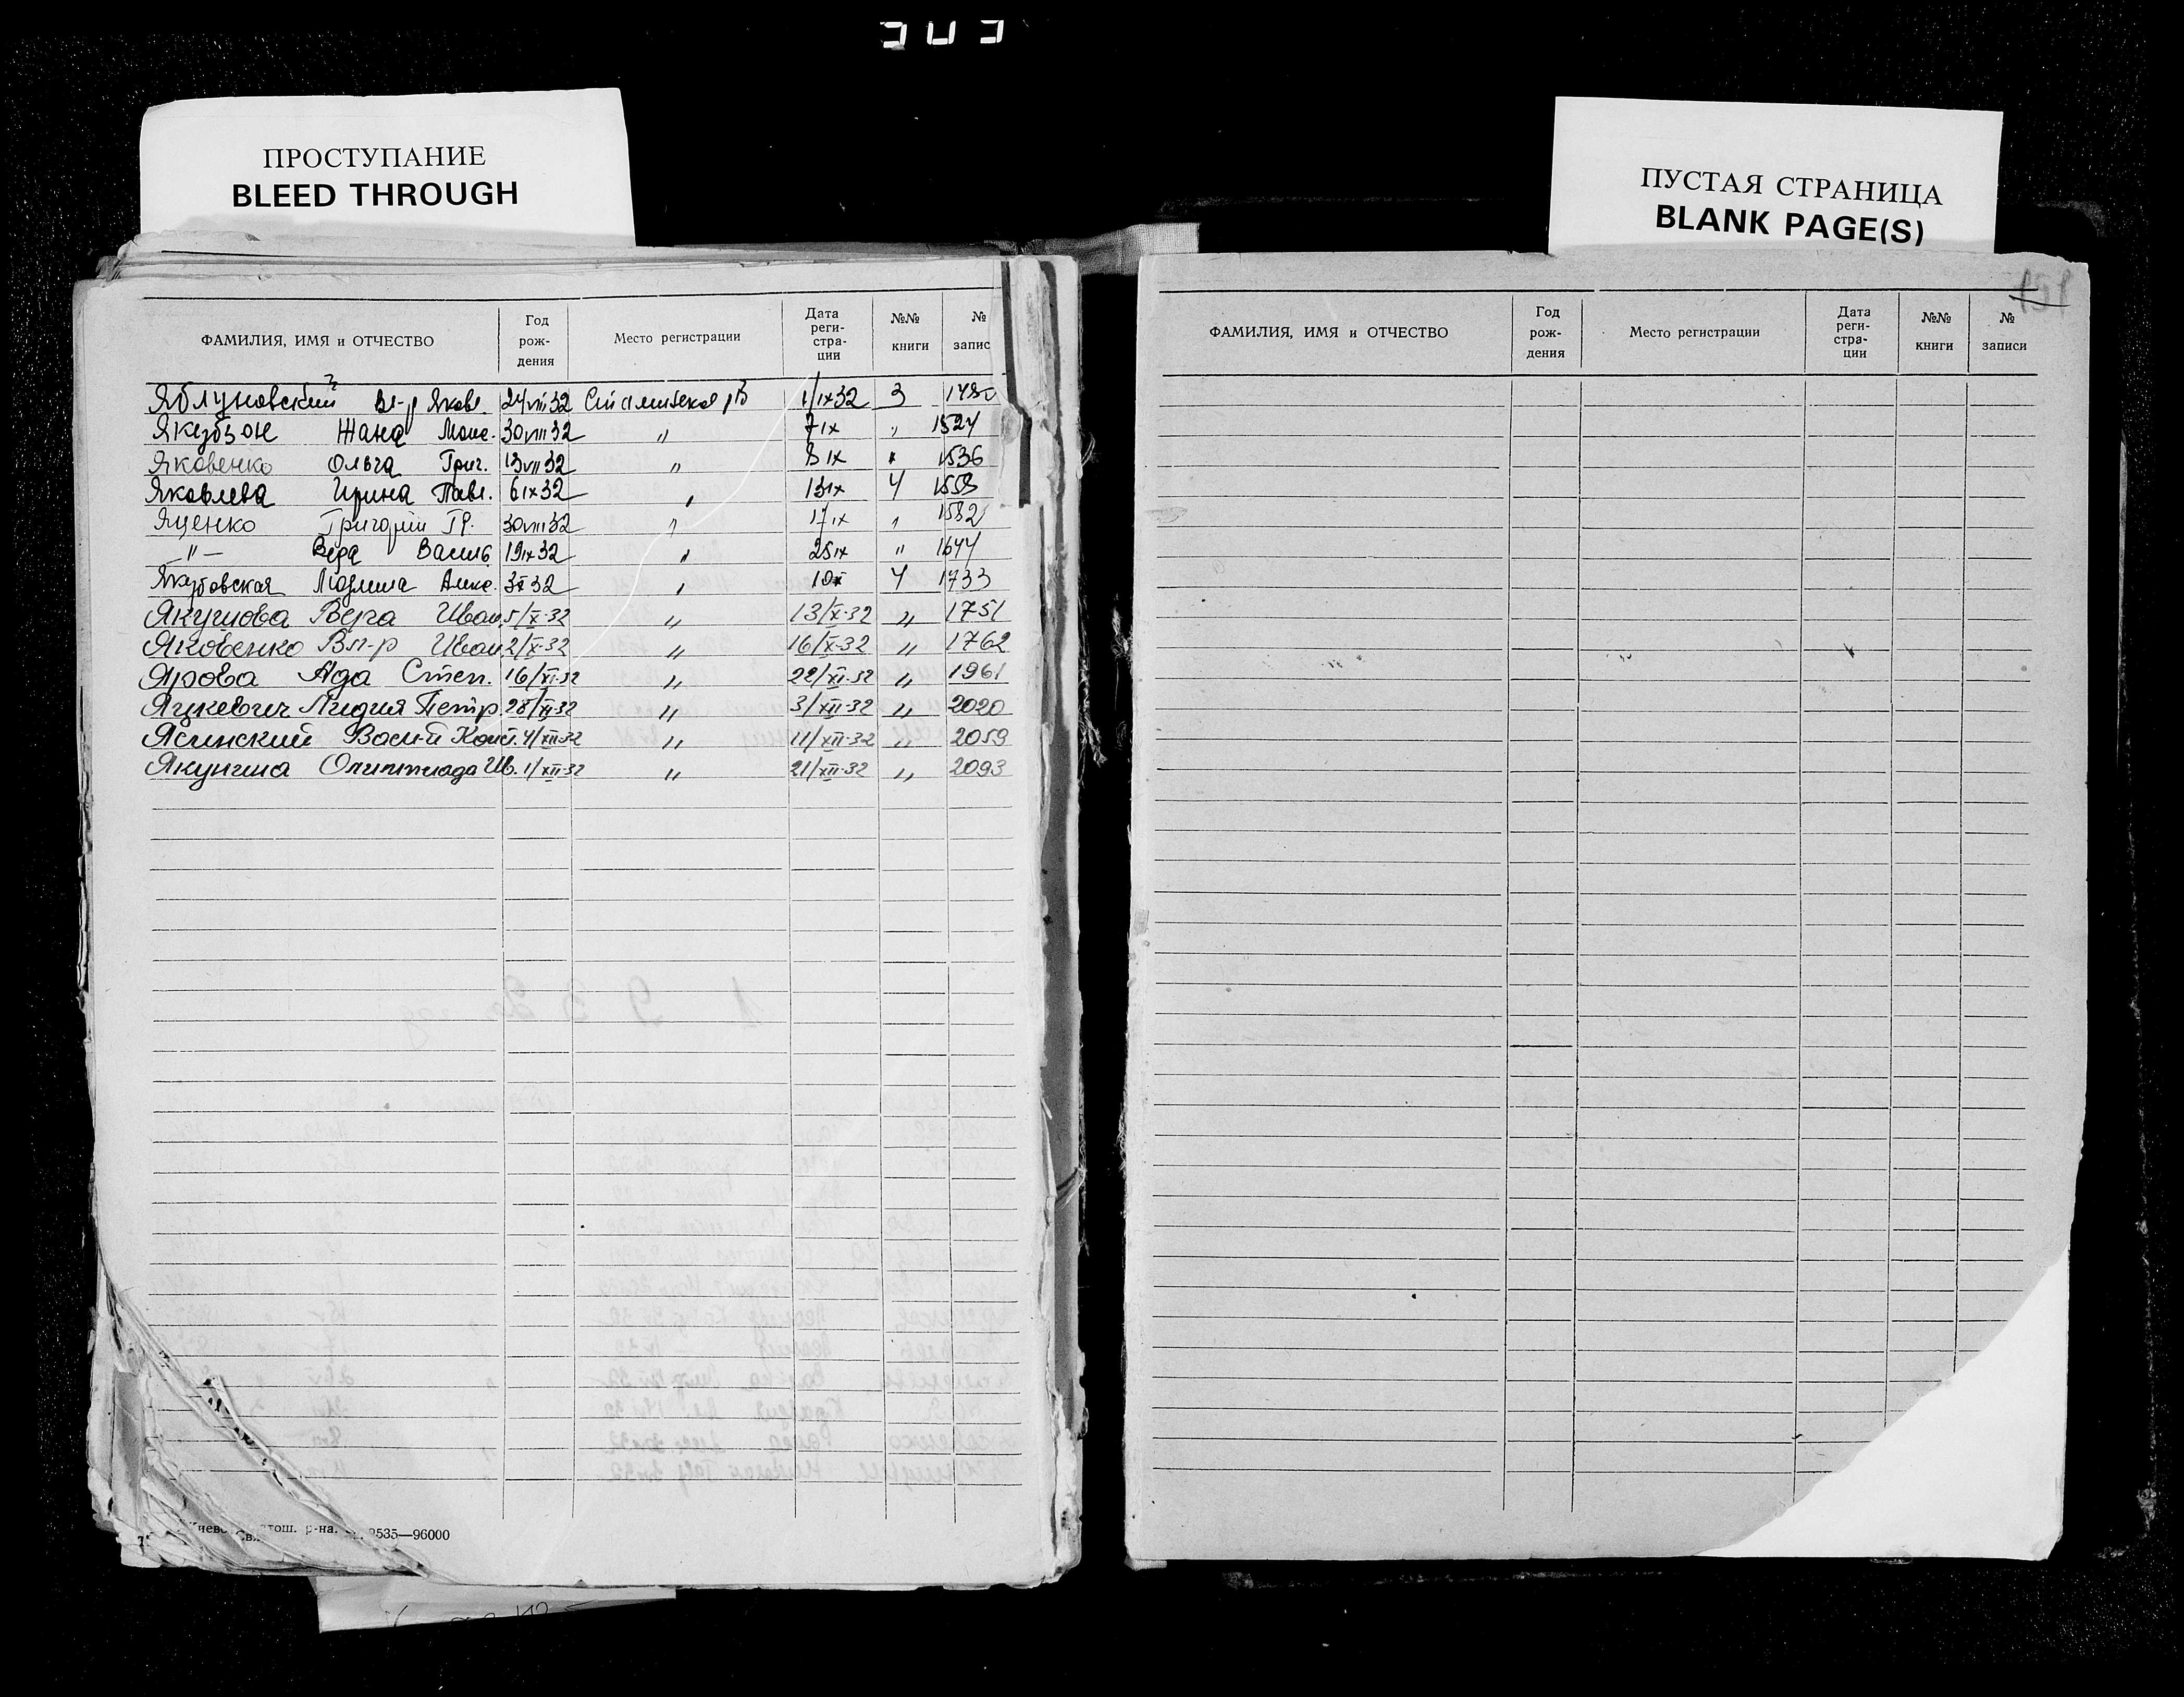 ПРОСТУПАНИЕ
BLEED THROUGH
ПУСТАЯ СТРАНИЦА
BLANK PAGE(S)
ФАМИЛИЯ, ИМЯ и ОТЧЕСТВО Год рож- дения Место регистрации Дата реги- стра- ции №№ книги № запис
Яблуновский Вл-р Яковл. 24/VIII 32 1/IX 32 3
Якубзон Жана 30 VIII 32 " 7 IX " 1524
Яковенко Ольга Григ. 13 VII 32 " 8 IX " 1536
Яковлева Ирина Павл. 6 IX 32 " 13 IX 4 1553
Яценко Григорий Гр. 30 VIII 32 " 17 IX " 1582
—"— Віра Василь 19 IX 32 " 25 IX " 1644
Якубовская Людмила Алекс. 3 X 32 " 10 X 4 1733
Якунова Вера Иван. 5/X-32 " 13/X-32 " 1751
Яковенко Вл-р Иван. 2/X-32 " 16/X-32 " 1762
Ярова Ада Степ. 16/XI-32 " 22/XI-32 " 1961
Яцкевич Лидия Петр. 28/XI-32 " 3/XII-32 " 2020
Ясинский Васи-й Конст. 4/XII-32 " 11/XII-32 " 2059
Якунина Олимпиада Ив. 1/XII-32 " 21/XII-32 " 2093
р-на. 2535—96000
ФАМИЛИЯ, ИМЯ и ОТЧЕСТВО Год рож- дения Место регистрации Дата реги- стра- ции №№ книги № записи